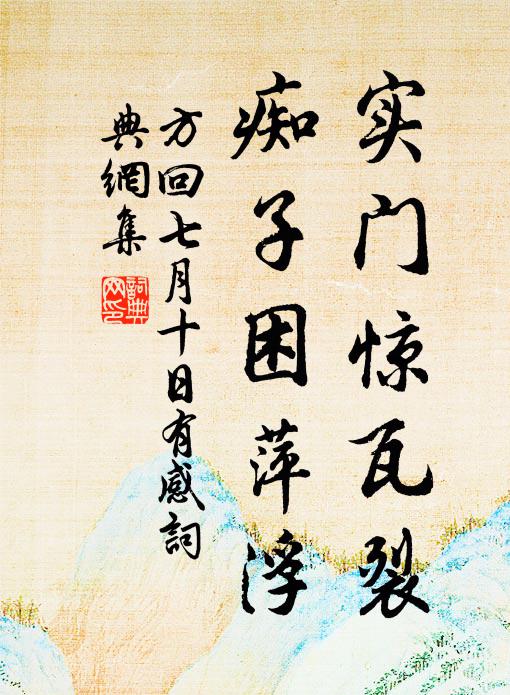 实门惊瓦裂
痴子困萍浮
方回七月十日有感詞
典網集
詞典
网印